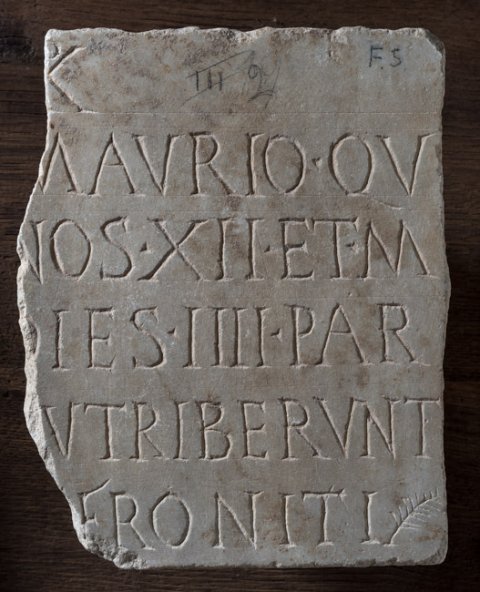 K III F.S
MAVRIO·OV
NOS·XII·ET·M
IES·IIII·PAR
VTRIBERVNT
FRONITI